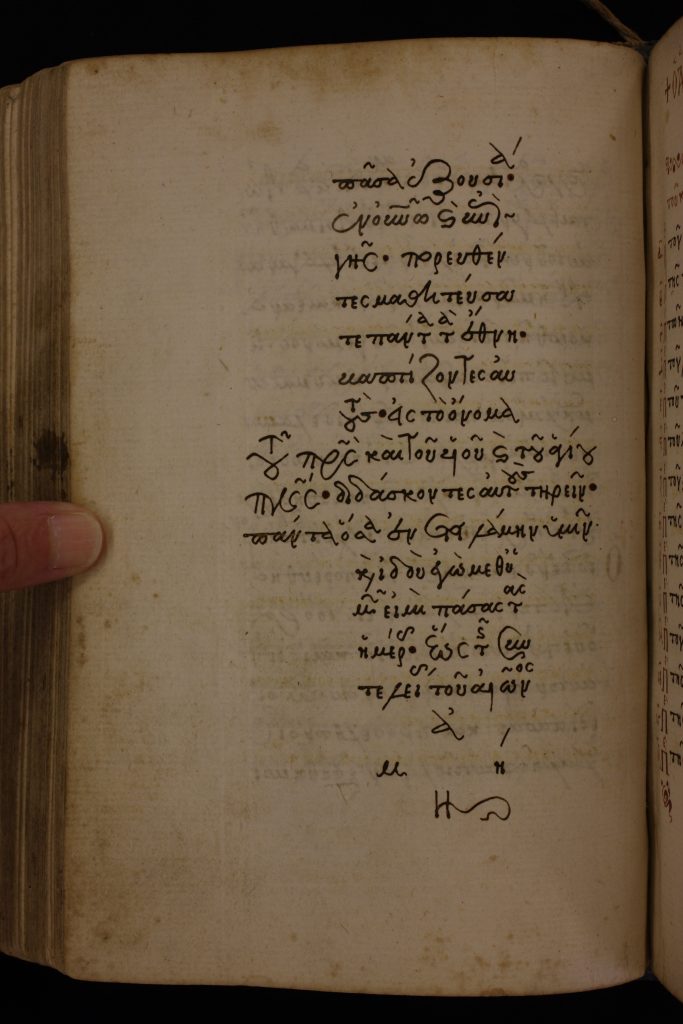 πᾶσα ἐξουσί(α)·
ἐν οὐ(ρα)νῶ ϗ ἐπὶ
γῆς· πορευθέν
τες μαθητεύσα
τε πάντα τὰ ἔθνη·
βαπτίζοντες αὐ
τοὺς· εἰς τὸ ὄνομα
τοῦ π(ατ)ρ(ὸ)ς καὶ τοῦ υἱοῦ ϗ τοῦ ἁγίου
πν(εύματο)ς· διδάσκοντες αὐτοὺς τηρεῖν·
πάντα ὅσα ἐνετειλάμην ὑμῖν·
ϗ ἰδοὺ ἐγὼ μεθ' ὑ
μῶν εἰμι πάσας τὰς
ἡμέρας· ἕως τῆς συν
τελείας τοῦ αἰῶνος
ἀ
μ ή
ν